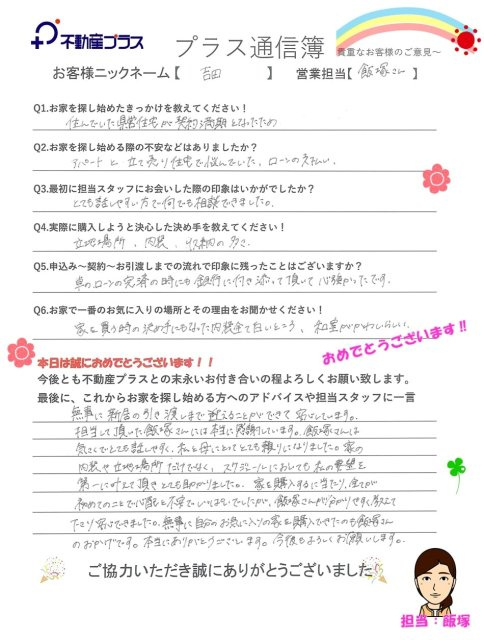 不動産プラス
プラス通信簿
貴重なお客様のご意見〜
お客様ニックネーム【 吉田 】 営業担当【 飯塚さん 】
Q1.お家を探し始めたきっかけを教えてください！
住んでいた県営住宅が契約満期となったため
Q2.お家を探し始める際の不安などはありましたか？
アパートと、立て売り住宅で悩んでいた、ローンの支払い、
Q3.最初に担当スタッフにお会いした際の印象はいかがでしたか？
とても話しやすい方で何でも相談できました。
Q4.実際に購入しようと決心した決め手を教えてください！
立地場所、内装、収納の多さ
Q5.申込み〜契約〜お引渡しまでの流れで印象に残ったことはございますか？
車のローンの完済の時にも銀行に付き添って頂して心強かったです。
Q6.お家で一番のお気に入りの場所とその理由をお聞かせください！
家を買う時の決め手にもなった内装全て白いところ、和室がかわいらしい。
おめでとうございます!!
本日は誠におめでとうございます！！
今後とも不動産プラスとの末永いお付き合いの程よろしくお願い致します。
最後に、これからお家を探し始める方へのアドバイスや担当スタッフに一言
無事に新居の引き渡しまで迎えることができて安心しています。
担当して頂いた飯塚さんには本当に感謝しています。飯塚さんは
気さくでとても話しやすく、私と母にとってとても頼りになりました。家の
内装や立地場所だけでなく、スケジュールにおいても私の要望を
第一に叶えて頂きとても助かりました。家を購入するに当たり、全てが
初めてのことで心配と不安でいっぱいでしたが、飯塚さんが分かりやすく教えて
下さり安心できました。無事に自分のお気に入りの家を購入できたのも飯塚さん
のおかげです。本当にありがとうございます。今後もよろしくお願いします。
ご協力いただき誠にありがとうございました！
担当：飯塚